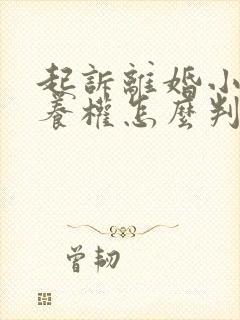 起訴離婚小
養權怎麼判
曾韌